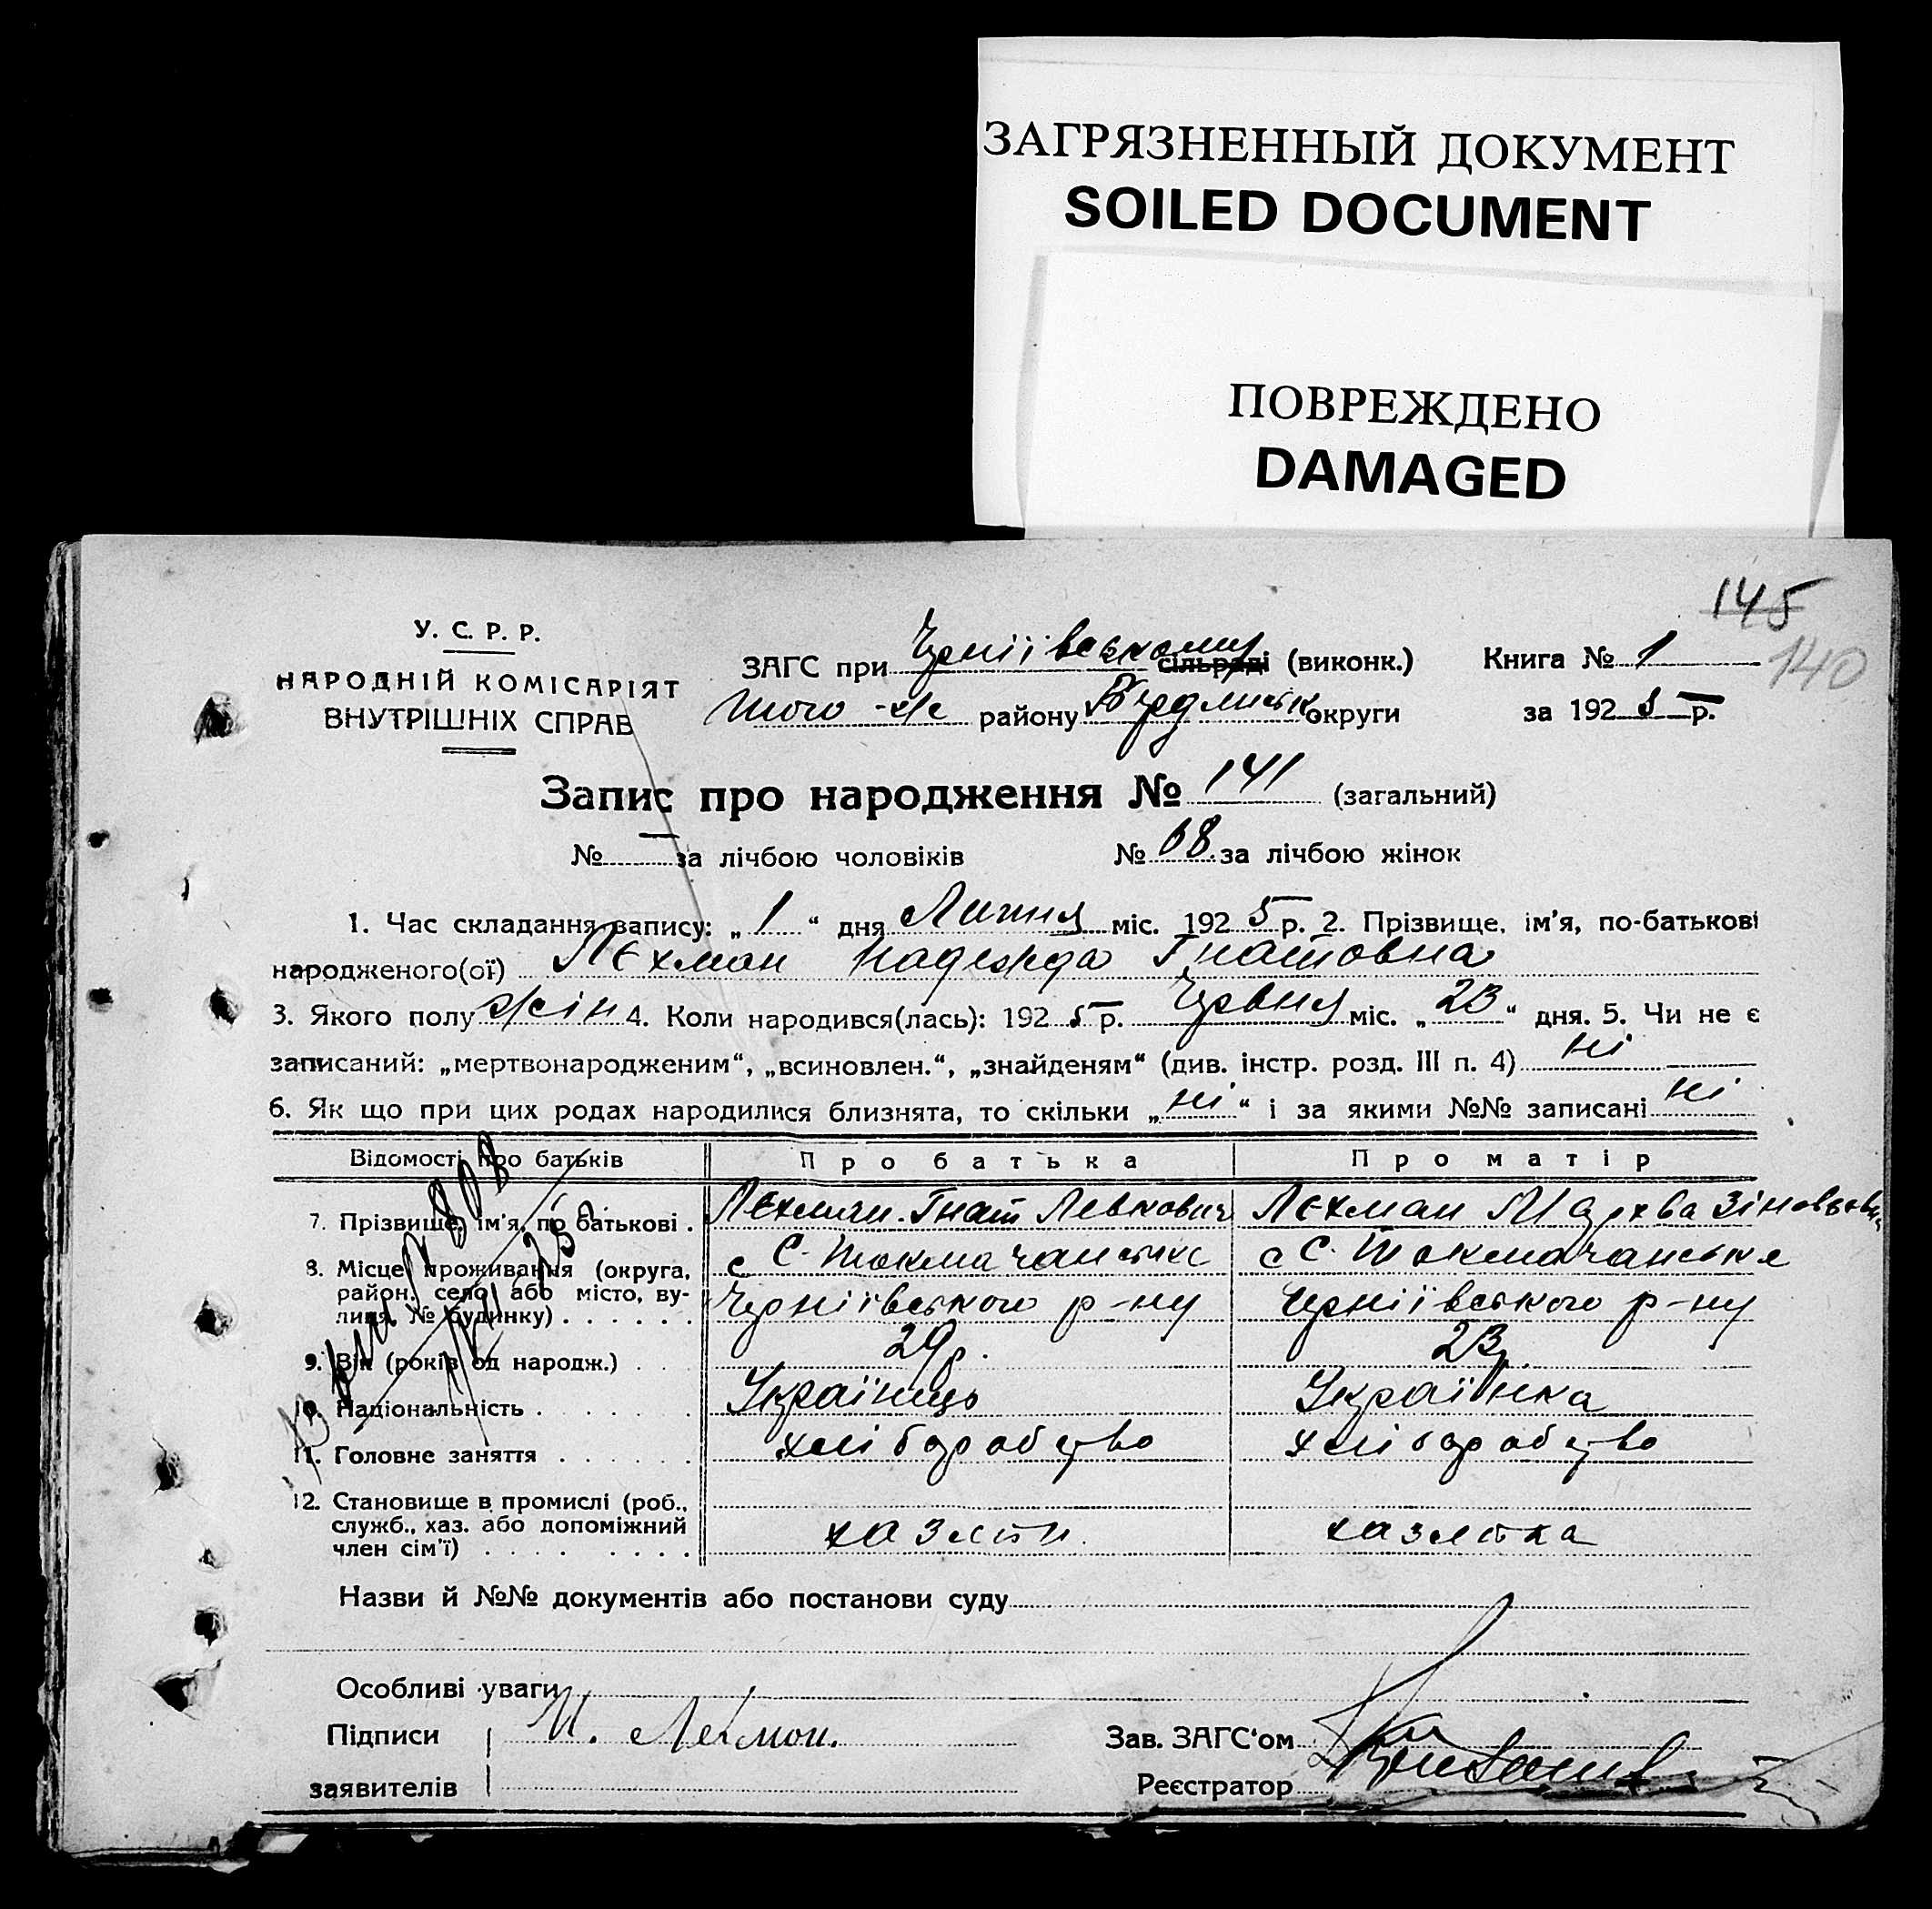 ЗАГРЯЗНЕННЫЙ ДОКУМЕНТ
SOILED DOCUMENT
ПОВРЕЖДЕНО
DAMAGED
145
140
У. С. Р. Р.
НАРОДНІЙ КОМІСАРІЯТ
ВНУТРІШНІХ СПРАВ
ЗАГС при Черніївському сільраді (виконк.) Книга № 1
того-же району округи за 1925 р.
Запис про народження № 141 (загальний)
№ — за лічбою чоловіків № 68. за лічбою жінок
1. Час складання запису: „1“ дня Липня міс. 1925 р. 2. Прізвище, ім'я, по-батькові
народженого(ої) Лєхман Надежда Гнатовна
3. Якого полу жін 4. Коли народився(лась): 1925 р. Червня міс. „23“ дня. 5. Чи не є
записаний: „мертвонародженим“, „всиновлен.“, „знайденям“ (див. інстр. розд. III п. 4) ні
6. Як що при цих родах народилися близнята, то скільки „ні“ і за якими №№ записані ні
Відомості про батьків Про батька Про матір
7. Прізвище, ім'я, по батькові . Лєхман Гнат Левкович Лєхман Зіновьевна
8. Місце проживання (округа, район, село або місто, вулиця, № будинку) . . . . . . с С. Токмачанське с С. Токмачанське
Черніївського р-ну Черніївського р-ну
9. Вік (років од народж.) . . . 29 р. 23 р.
10. Національність . . . . . . Українець Українка
11. Головне заняття . . . . . . хліборобство хліборобство
12. Становище в промислі (роб., служб., хаз. або допоміжний член сім'ї) . . . . . . . . хазяїн хазяйка
Назви й №№ документів або постанови суду
Особливі уваги
Підписи И. Лехман. Зав. ЗАГС'ом
заявителів Реєстратор